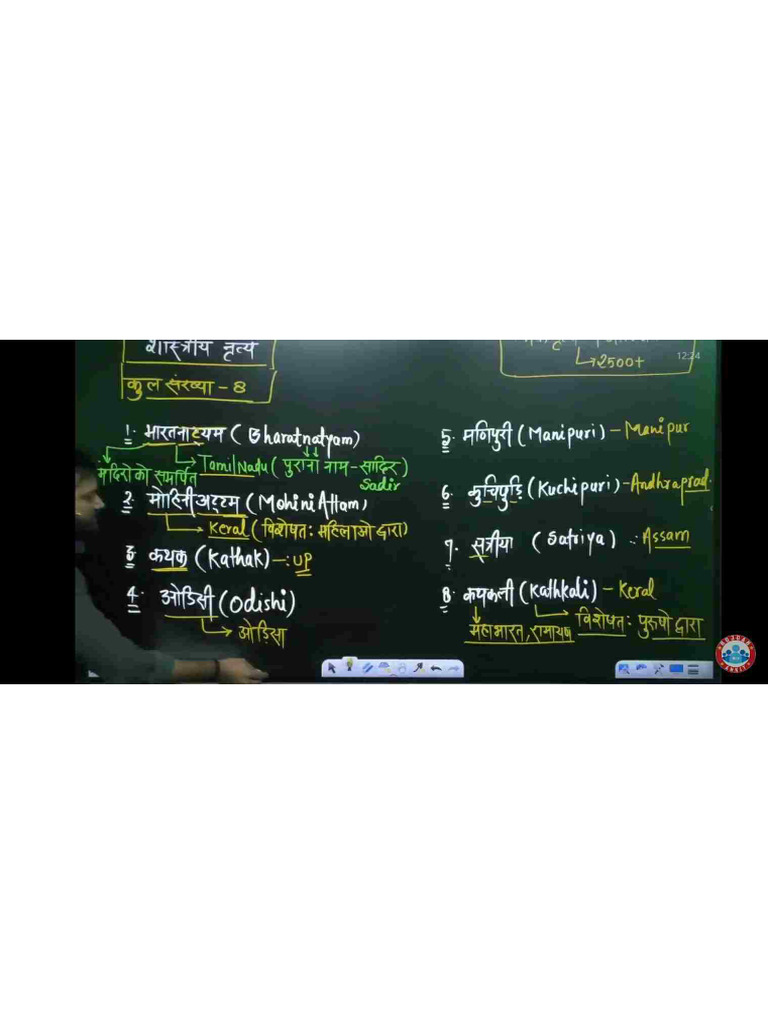 शास्त्रीय नृत्य
कुल संख्या - 8
1. भारतनाट्यम (Bharatnatyam)
मंदिरो को समर्पित
TamilNadu (पुराना नाम - सादिर)
Sadir
2. मोहिनीअट्टम (Mohini Attam)
Keral (विशेषत: महिलाओ द्वारा)
3. कथक (Kathak) -: UP
4. ओडिसी (Odishi)
ओड़िसा
2500+
12:24
5. मणिपुरी (Manipuri) - Manipur
6. कुचिपुड़ि (Kuchipuri) - Andhraprad.
7. सत्रीया (Satriya) :- Assam
8. कथकली (Kathkali) - Keral
महाभारत, रामायण
विशेषत: पुरुषो द्वारा